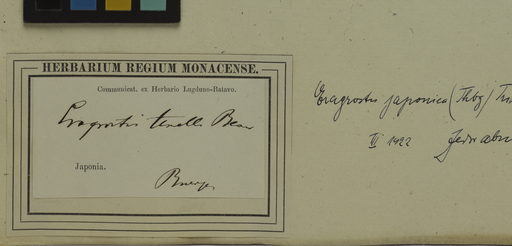 HERBARIUM REGIUM MONACENSE.
Communicat. ex Herbario Lugduno-Batavo.
Eragrostis tenella Beauv
Japonia.
Buerger
Eragrostis japonica (Thbg) Trin
VI 1922